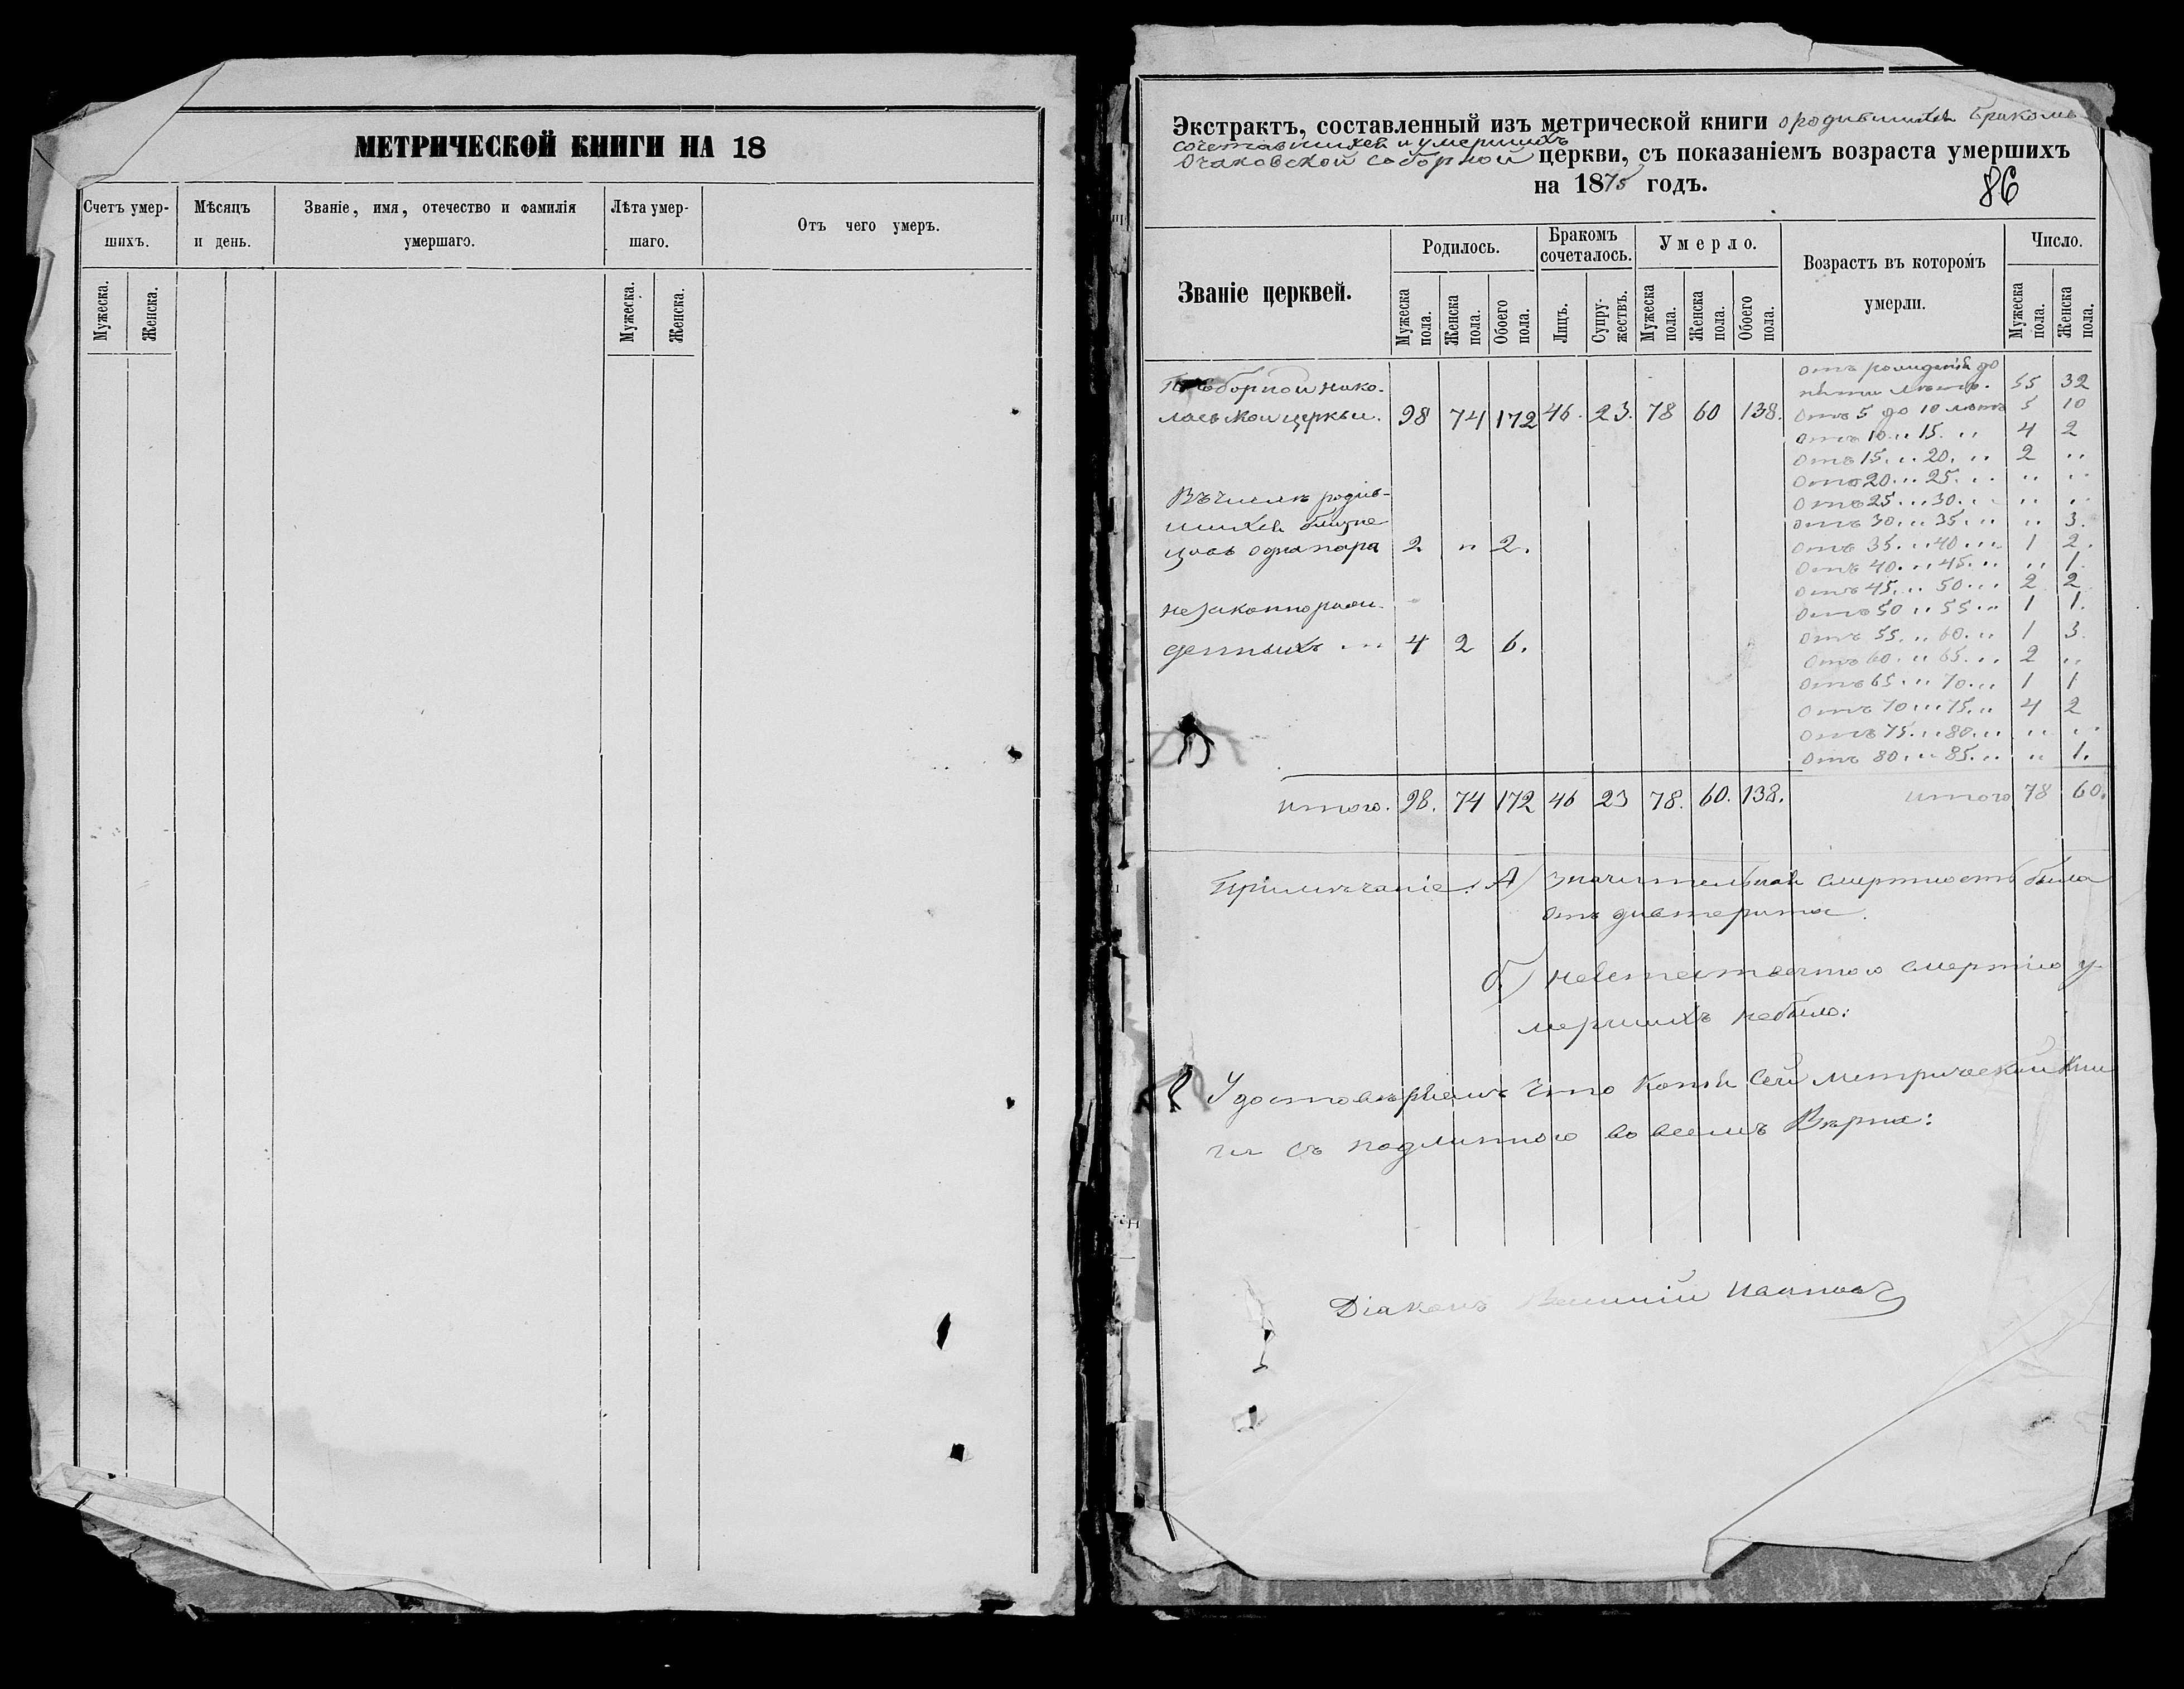 МЕТРИЧЕСКОЙ КНИГИ НА 18
Счетъ умер-
шихъ.
Мѣсяцъ
и день.
Званіе, имя, отечество и фамилія
умершаго.
Лѣта умер-
шаго.
Отъ чего умеръ.
Мужеска.
Женска.
Мужеска.
Женска.
Экстрактъ, составленный изъ метрической книги о родившихся бракомъ
сочетавшихся и умершихъ
Очаковской соборной церкви, съ показаніемъ возраста умершихъ
на 1875 годъ.
86
Званіе церквей.
Родилось.
Бракомъ
сочеталось.
Умерло.
Возрастъ въ которомъ
умерли.
Число.
Мужеска пола.
Женска пола.
Обоего пола.
Лицъ.
Супру-
жествъ.
Мужеска пола.
Женска пола.
Обоего пола.
Мужеска пола.
Женска пола.
соборной Нико-
лаевской церкви. 98 74 172 46. 23. 78 60 138.
отъ рожденія до
пяти лѣтъ. 55 32
Отъ 5 до 10 лѣтъ 5 10
Отъ 10 " 15. " 4 2
Отъ 15. " 20. " 2 "
Отъ 20 " 25. " " "
Отъ 25 " 30. " " "
Отъ 30 " 35. " " 3.
Отъ 35. " 40 " 1 2.
Отъ 40. " 45. " " 1.
Отъ 45. " 50 " 2 2
Отъ 50 " 55 " 1 1.
Отъ 55. " 60. " 1 3.
Отъ 60. " 65. " 2 "
Отъ 65. " 70. " 1 1
Отъ 70 " 75. " 4 2
Отъ 75. " 80. " " "
Отъ 80. " 85. " " 1.
Въ числѣ родив-
шихся близне
цовъ одна пара 2 " 2.
незаконнорож-
денныхъ " 4 2 6.
итого. 98. 74 172 46 23 78. 60. 138.
итого 78 60.
Примѣчаніе: А) значительная смертность была
отъ дивтерита.
б) неестественною смертію у-
мершихъ небыло:
Удостовѣряемъ что копія сей метрической кни
ги съ подлинною во всемъ вѣрна:
Діаконъ